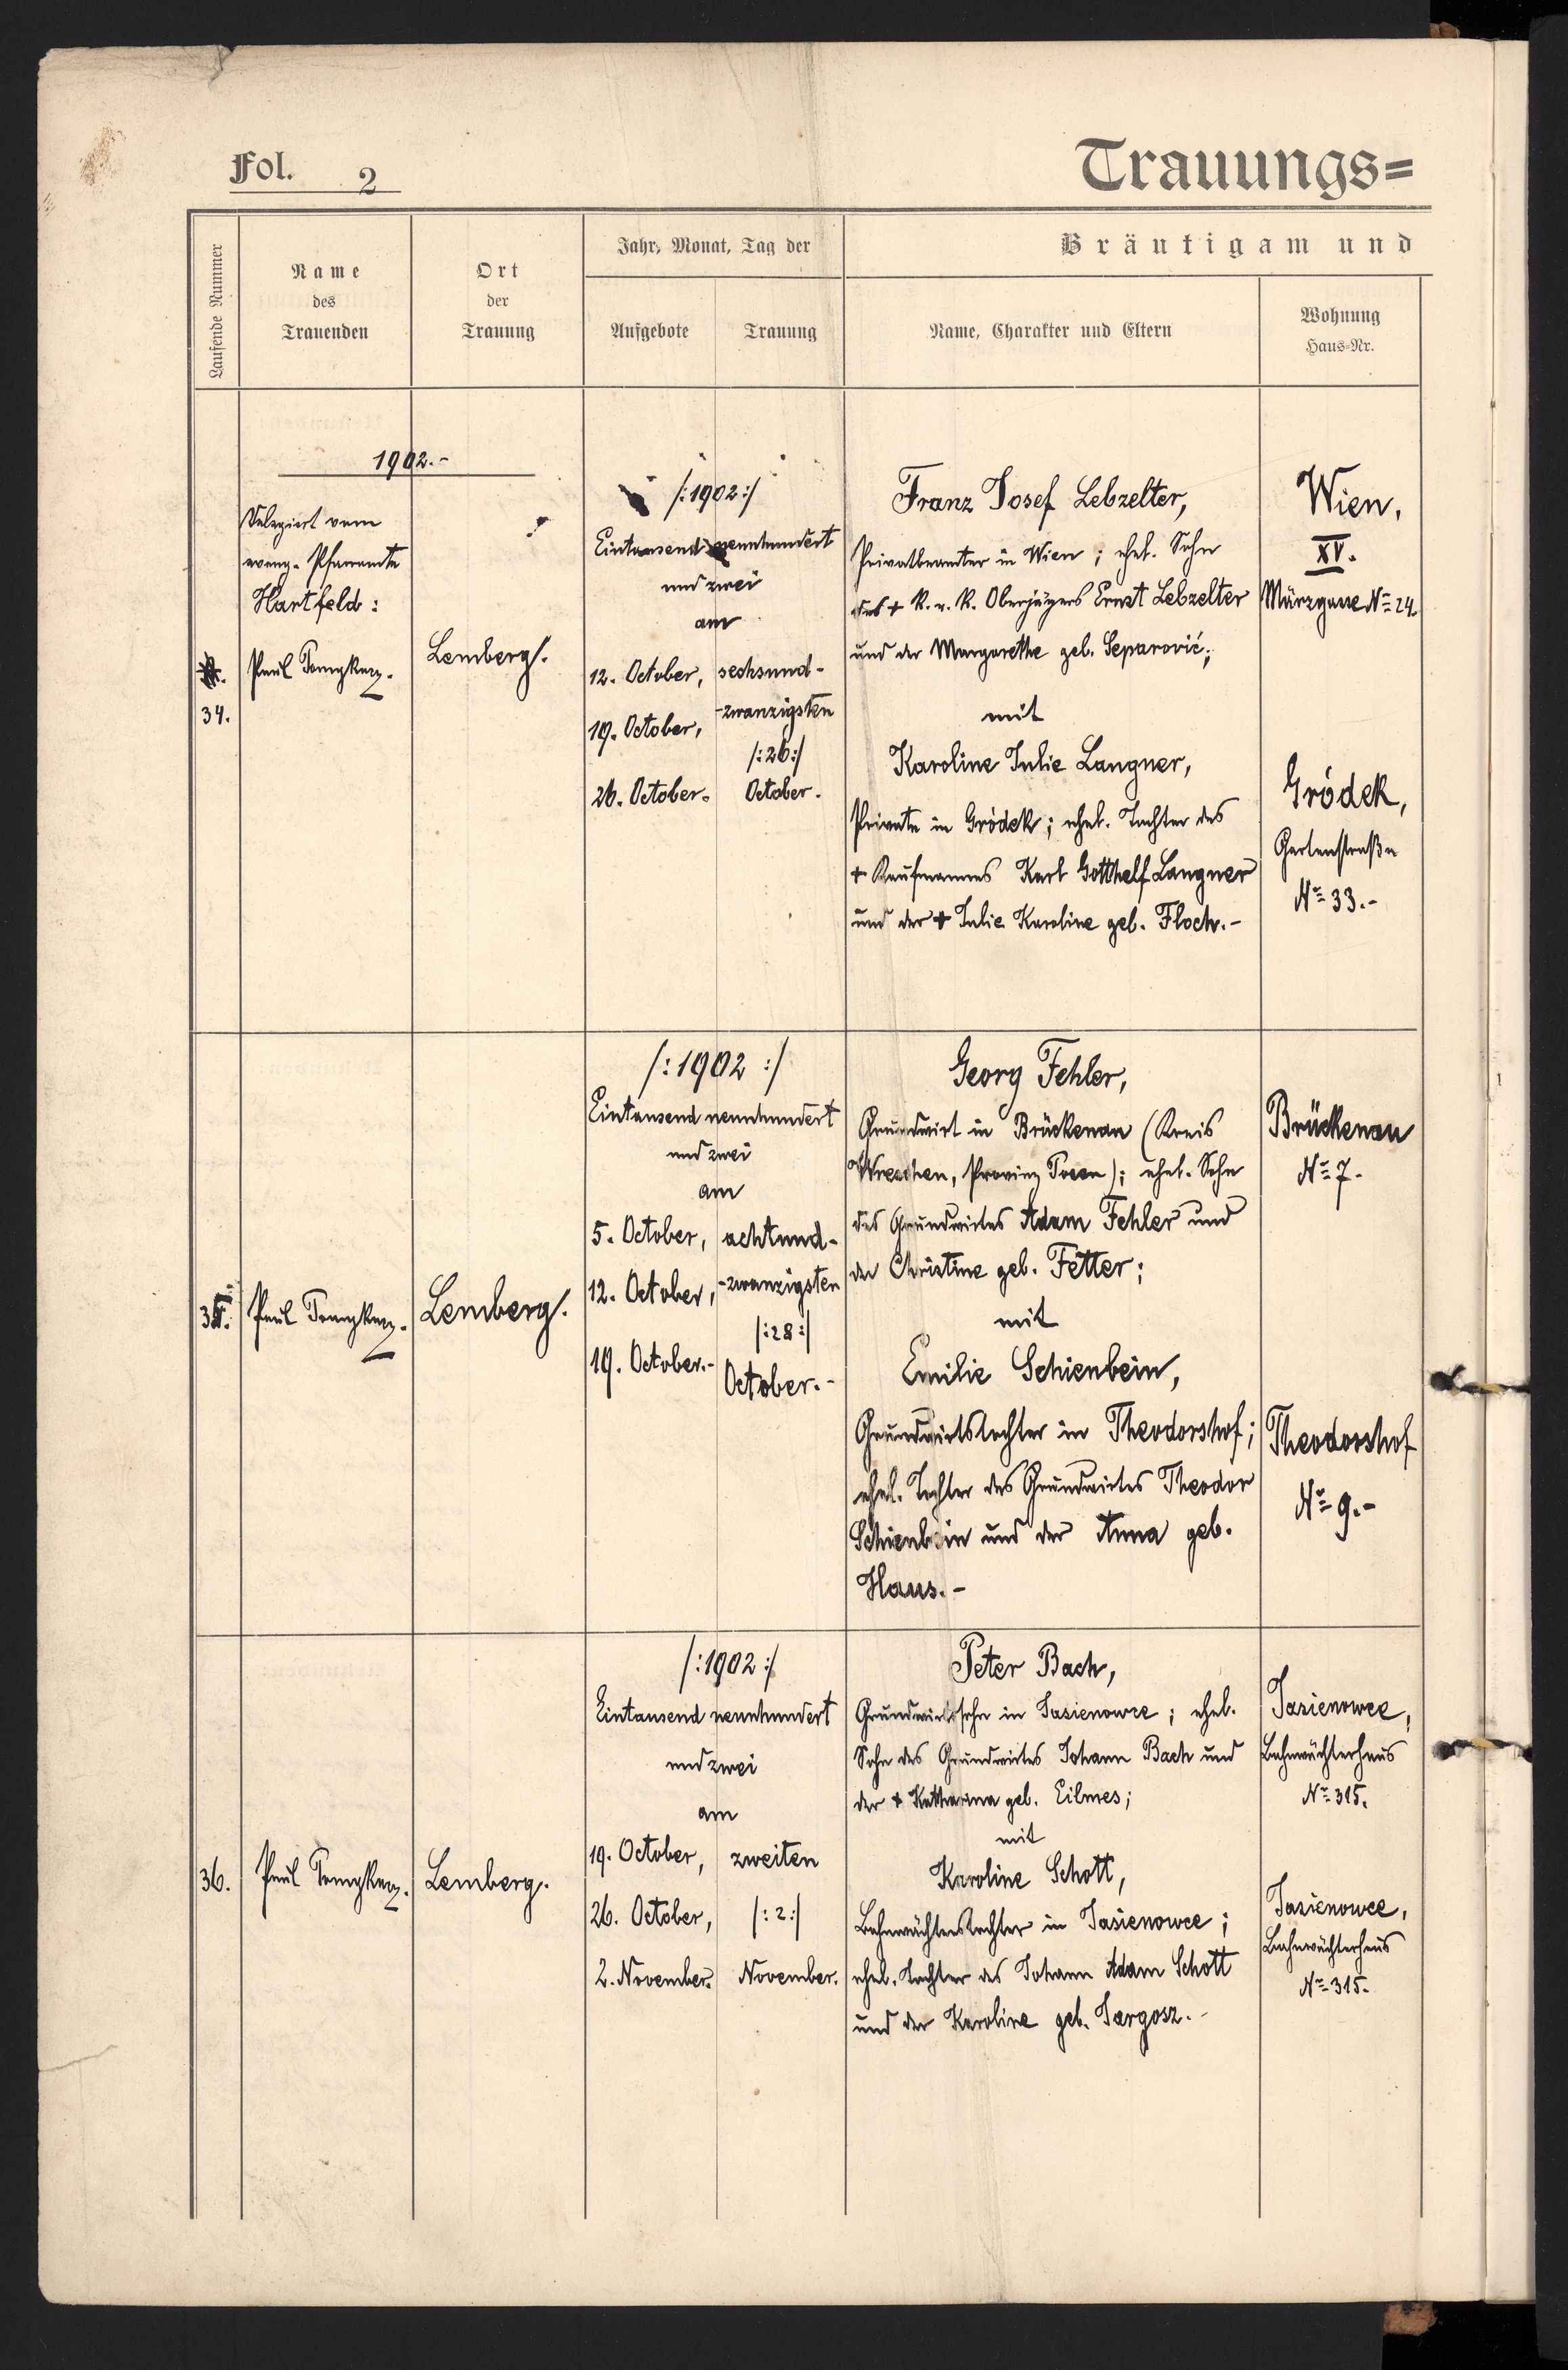 Fol. 2
Trauungs=
Laufende Nummer
Name
des
Trauenden
Ort
der
Trauung
Jahr, Monat, Tag der
Aufgebote
Trauung
Bräutigam und
Name, Charakter und Eltern
Wohnung
Haus=Nr.
1902.-
34.
Delegiert vom
evang. Pfarramte
Hartfeld:
Paul
Lemberg.
/:1902:/
Eintausend neunhundert
und zwei
am
12. October,
19. October,
26. October.
sechsund-
-zwanzigsten
/:26:/
October.
Franz Josef Lebzelter,
Privatbeamter in Wien; ehel. Sohn
des + K. u. K. Oberjägers Ernst Lebzelter
und der Margarethe geb. Separović;
mit
Karoline Julie Langner,
Private in Gródek; ehel. Tochter des
+ Kaufmannes Karl Gotthelf Langner
und der + Julie Karoline geb. Floch.-
Wien,
XV.
Märzgasse No 24.
Gródek,
Gartenstraße
No 33.-
35.
Paul
Lemberg.
/:1902:/
Eintausend neunhundert
und zwei
am
5. October,
12. October,
19. October.-
achtund-
-zwanzigsten
/:28:/
October.-
Georg Fehler,
Grundwirt in Brückenau (Kreis
Wreschen, Provinz Posen); ehel. Sohn
des Grundwirtes Adam Fehler und
der Christine geb. Fetter;
mit
Emilie Schienbein,
Grundwirtstochter in Theodorshof;
ehel. Tochter des Grundwirtes Theodor
Schienbein und der Anna geb.
Haus.-
Brückenau
No 7.
Theodorshof
No 9.-
36.
Paul
Lemberg.
/:1902:/
Eintausend neunhundert
und zwei
am
19. October,
26. October,
2. November.
zweiten
/:2:/
November.
Peter Bach,
Grundwirtssohn in Jasienowce; ehel.
Sohn des Grundwirtes Johann Bach und
der + Katharina geb. Eilmes;
mit
Karoline Schott,
Bahnwächterstochter in Jasienowce;
ehel. Tochter des Johann Adam Schott
und der Karoline geb. Targosz.-
Jasienowce,
Bahnwächterhaus
No 315.
Jasienowce,
Bahnwächterhaus
No 315.